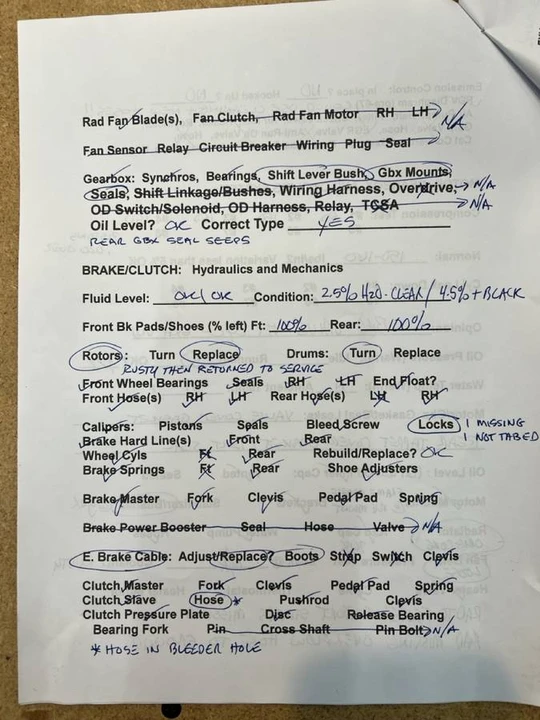 Rad Fan Blade(s), Fan Clutch, Rad Fan Motor RH LH N/A
Fan Sensor Relay Circuit Breaker Wiring Plug Seal
Gearbox: Synchros, Bearings, Shift Lever Bush, Gbx Mounts,
Seals, Shift Linkage/Bushes, Wiring Harness, Overdrive, N/A
OD Switch/Solenoid, OD Harness, Relay, TCSA N/A
Oil Level? OK Correct Type YES
REAR GBX SEAL SEEPS
BRAKE/CLUTCH: Hydraulics and Mechanics
Fluid Level: OK/OK Condition: 2.5% H2O-CLEAN/4.5%+BLACK
Front Bk Pads/Shoes (% left) Ft: 100% Rear: 100%
Rotors: Turn Replace Drums: Turn Replace
RUSTY THEN RETURNED TO SERVICE
Front Wheel Bearings Seals RH LH End Float?
Front Hose(s) RH LH Rear Hose(s) LH RH
Calipers: Pistons Seals Bleed Screw Locks 1 MISSING
Brake Hard Line(s) Front Rear 1 NOT TABED
Wheel Cyls Ft Rear Rebuild/Replace? OK
Brake Springs Ft Rear Shoe Adjusters
Brake Master Fork Clevis Pedal Pad Spring
Brake Power Booster Seal Hose Valve N/A
E. Brake Cable: Adjust/Replace? Boots Strap Switch Clevis
Clutch Master Fork Clevis Pedal Pad Spring
Clutch Slave Hose * Pushrod Clevis
Clutch Pressure Plate Disc Release Bearing
Bearing Fork Pin Cross Shaft Pin Bolt N/A
* HOSE IN BLEEDER HOLE